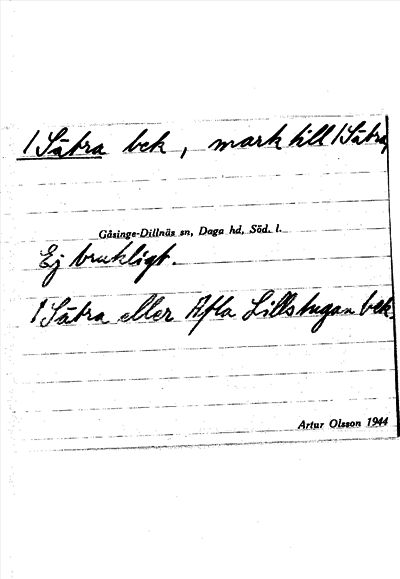 /Sätra bek, mark till /Sätra,
Gåsinge-Dillnäs sn, Daga hd, Söd. l.
Ej brukligt.
/Sätra eller Afla Lillstugan bek.
Artur Olsson 1944